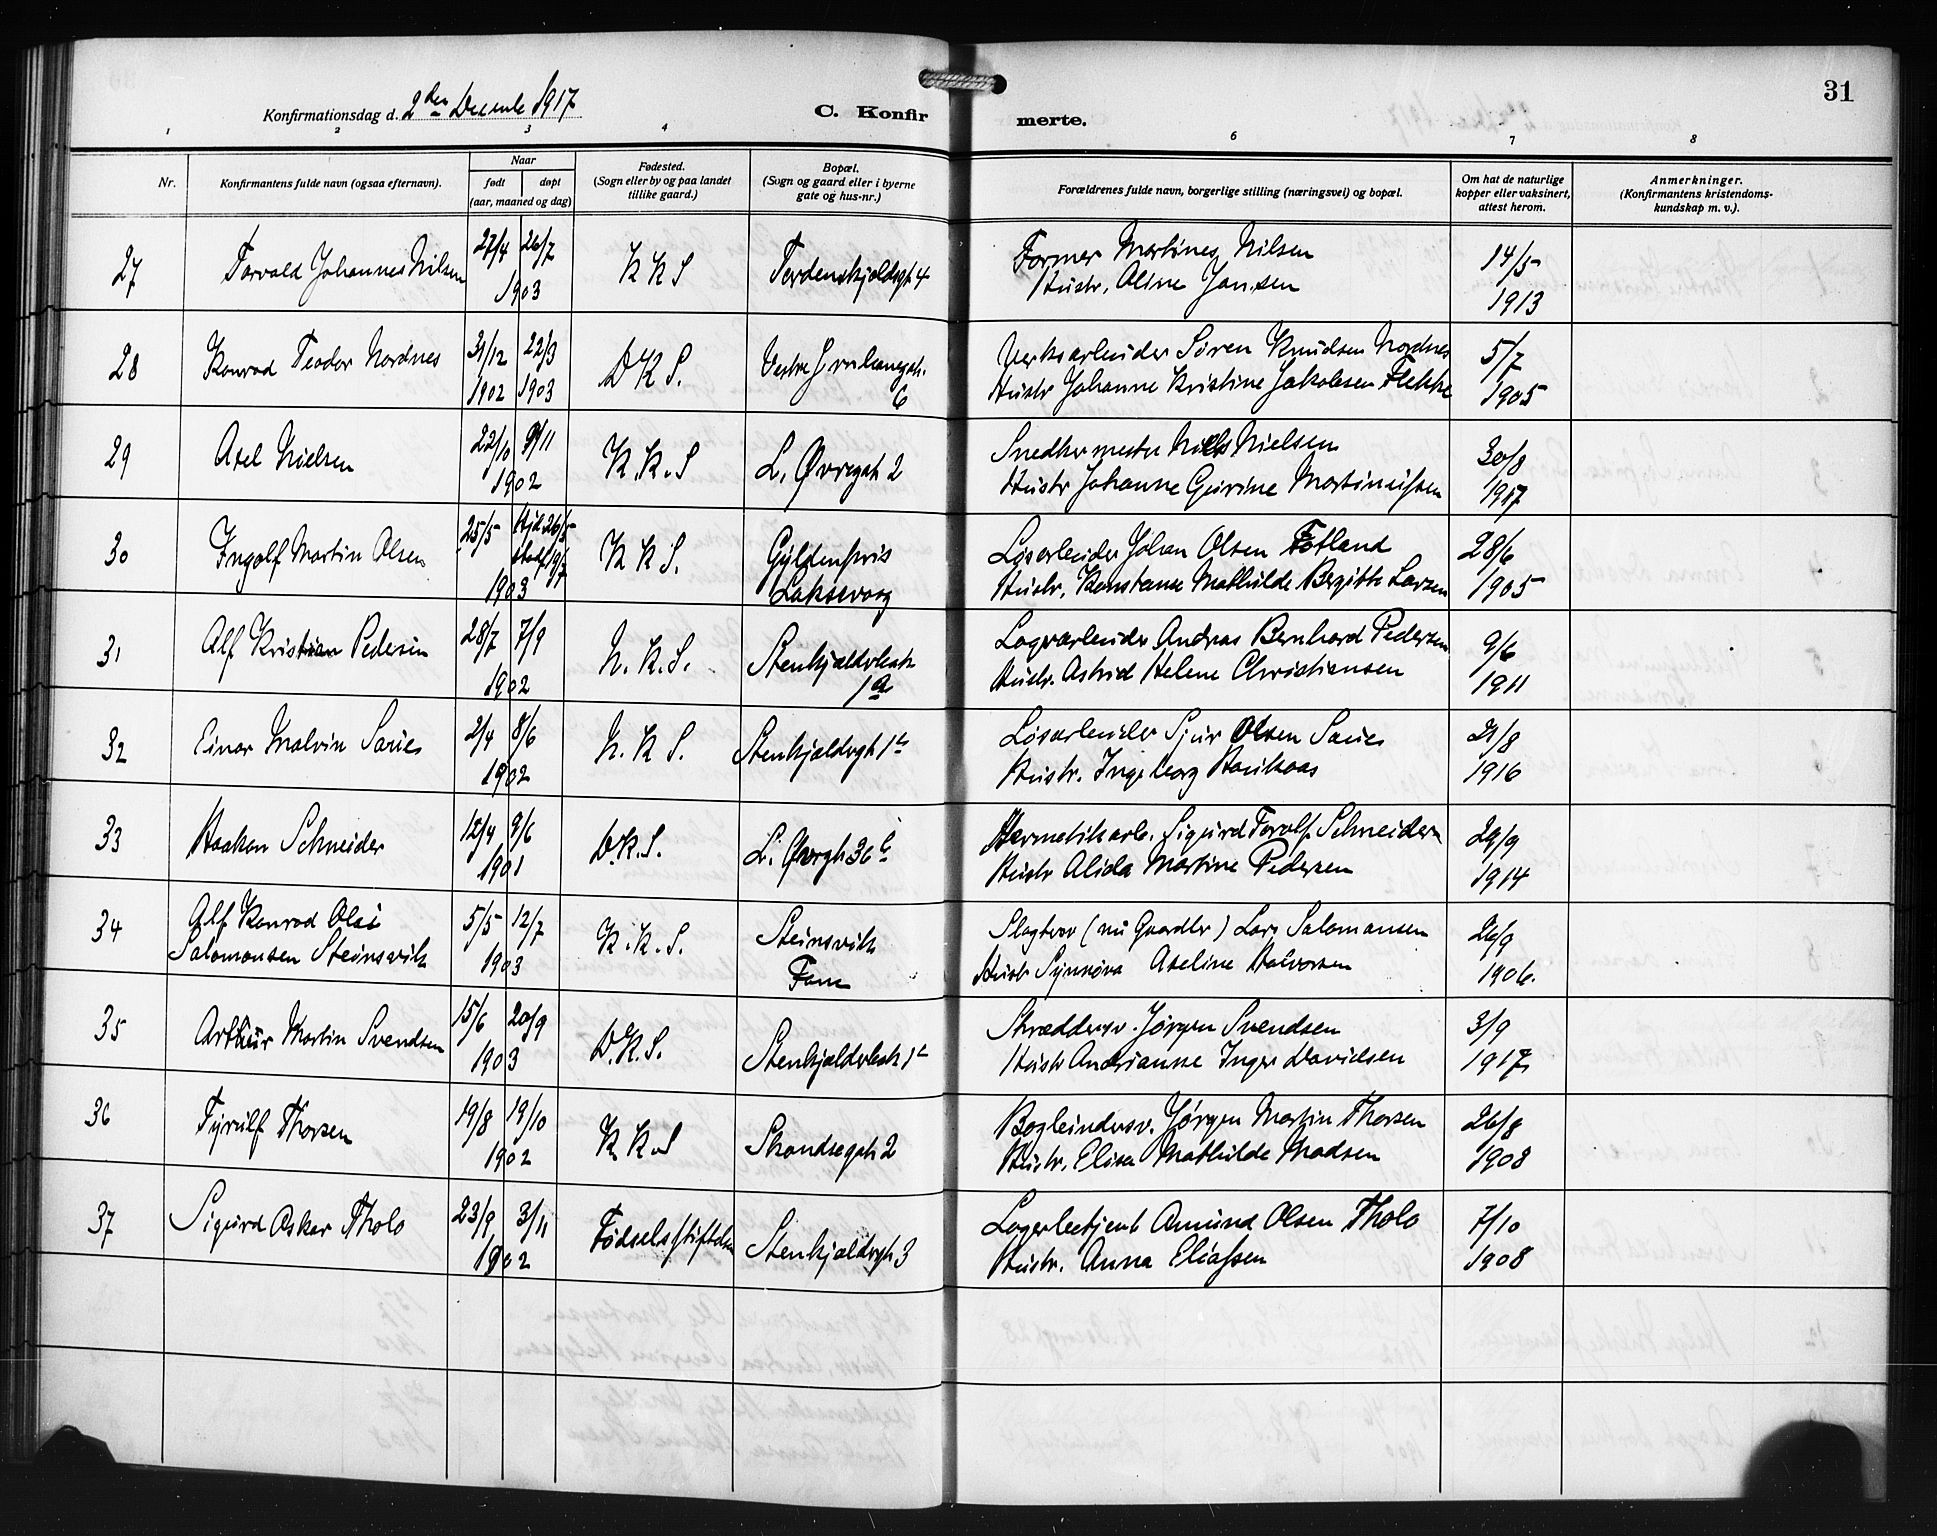 31
Konfirmationsdag d. 2den Decembr 1917
C. Konfirmerte.
1 2 3 4 6 7 8
Nr. Konfirmantens fulde navn (ogsaa efternavn). Naar født døpt (aar, maaned og dag) Fødested. (Sogn eller by og paa landet tillike gaard.) Bopæl. (Sogn og gaard eller i byerne gate og hus-nr.) Forældrenes fulde navn, borgerlige stilling (næringsvei) og bopæl. Om hat de naturlige kopper eller vaksinert, attest herom. Anmerkninger. (Konfirmantens kristendoms-kundskap m. v.).
27 Torvald Johannes Nilsen 27/4 26/7 1903 K K S Tordenskjoldsgt 4 Former Martines Nilsen 14/5
Hustr. Aline Jansen 1913
28 Konrad Teodor Nordnes 31/12 1902 22/3 1903 D K S. Vestre 6 Verksarbeider Søren Knudsen Nordnes 5/7
Hustr Johanne Kristine Jakobsen Flekke 1905
29 Axel Nielsen 22/10 9/11 1902 K.K.S L. Øvregt 2 Snedkermester Niels Nielsen 30/8
Hustr Johanne Gurine Martinussen 1917
30 Ingolf Martin Olsen 25/5 Hjd 26/5 stadf 19/7 1903 K K S. Gyldenpris Laksevaag Løsarbeider Johan Olsen Fotland 28/6
Hustr. Konstanse Mathilde Bergitte Larsen 1905
31 Alf Kristian Pedersen 28/7 7/9 1902 N.K.S. 1a Andreas Bernhard Pedersen 9/6
Hustr. Astrid Helene Christiansen 1911
32 Einar Malvin Saues 2/4 8/6 1902 N.K S. Løsarbeider Sjur Olsen Saues 21/8
Hustr. Ingeborg Haukaas 1916
33 Haakon Schneider 12/4 9/6 1901 D.K.S. Hermetikarb. Sigurd Torolf Schneider 29/9
Hustr Alida Martine Pedersen 1914
34 Alf Konrad Olai Salomonsen Steinsvik 5/5 12/7 1903 K.K.S. Steinsvik Fane (nu Gaardbr) Lars Salomonsen 26/9
Hustr Synnøva Aseline Halvorsen 1906.
35 Arthur Martin Svendsen 15/6 20/9 1903 D.K.S. Skræddersv. Jørgen Svendsen 3/9
Hustr Andrianne Inger Davidsen 1917
36 Tyrulf Thorsen 19/8 19/10 1902 K.K.S Strandsegt 2 Bogbindersv. Jørgen Martin Thorsen 26/8
Hustr. Elisa Mathilde Madsen 1908
37 Sigurd Oskar Tholo 23/9 3/11 1902 Fødselsstiftelsen Stenkjældergt 3 Lagerbetjent Amund Olsen Tholo 7/10
Hustr. Anna Eliassen 1908